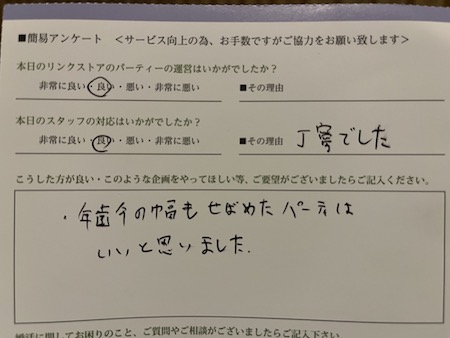 ■簡易アンケート　＜サービス向上の為、お手数ですがご協力をお願い致します＞
本日のリンクストアのパーティーの運営はいかがでしたか？
非常に良い・良い・悪い・非常に悪い　■その理由
本日のスタッフの対応はいかがでしたか？
非常に良い・良い・悪い・非常に悪い　■その理由　丁寧でした
こうした方が良い・このような企画をやってほしい等、ご要望がございましたらご記入ください。
・年歯令の幅も せばめた パーティは
いいと思いました.
婚活に関してお困りのこと、ご質問やご相談がございましたらご記入下さい。